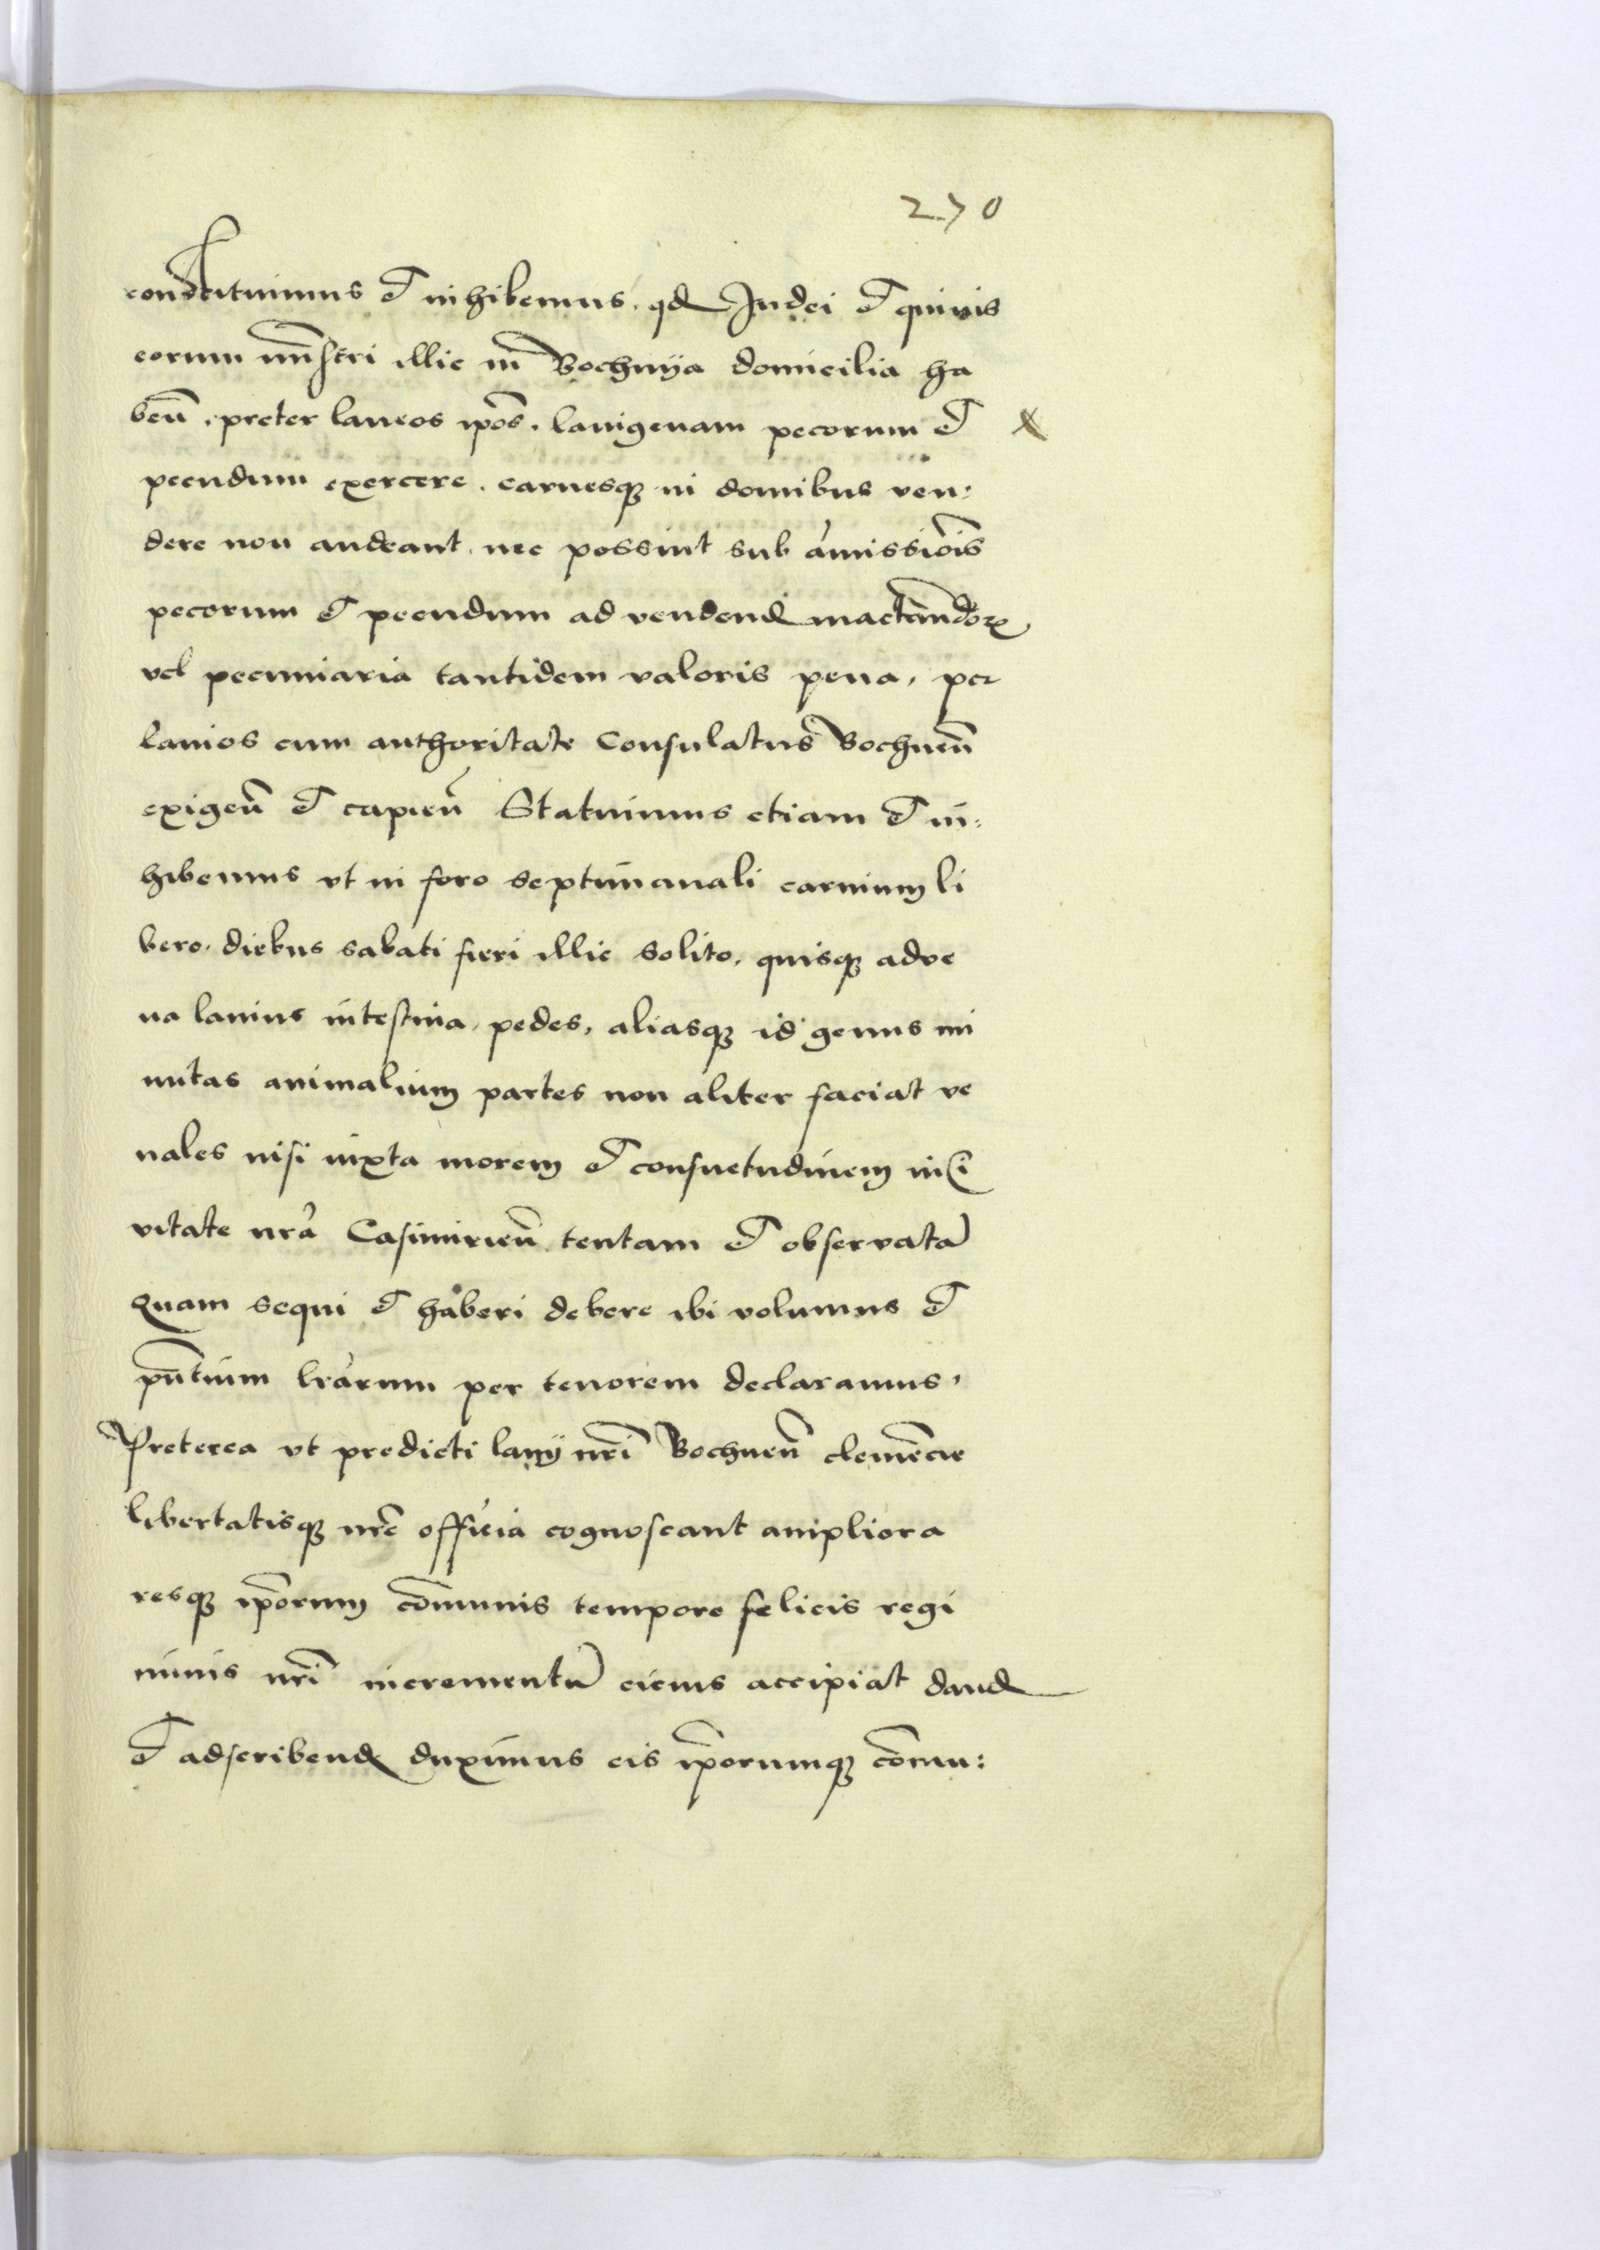 270
constituimus et inhibemus. qd Judei et quivis
eorum mnstri illic in Bochnija domicilia ha
ben̄. preter laneos ipos. lanigenam pecorum et
pecudum exercere. carnesq in domibus ven:
dere non audeant. nec possint sub amissiois
pecorum et pecudum ad vendend mactandor
vel pecuniaria tantidem valoris pena, per
lanios cum authoritate Consulatus Bochnen̄
exigen̄ et capien̄ Statuimus etiam et in:
hibemus vt in foro septimanali carnium li
bero. diebus sabati fieri illic solito, quisq adve
na lanius intestina, pedes, aliasq id genus mi
nutas animalium partes non aliter faciat ve
nales nisi iuxta morem et consuetudinem in Ci
vitate nra Casimirien̄ tentam et observata
Quam sequi et haberi debere ibi volumus et
pn̄tium lrarum per tenorem declaramus,
Preterea vt predicti lanij nri Bochnen̄ clemēcie
libertatisq nre officia cognoscant ampliora
resq ipōrum cōmunis tempore felicis regi
minis nri incrementu eius accipiat dand
et adscribend duximus eis ipōrumq cōmu: